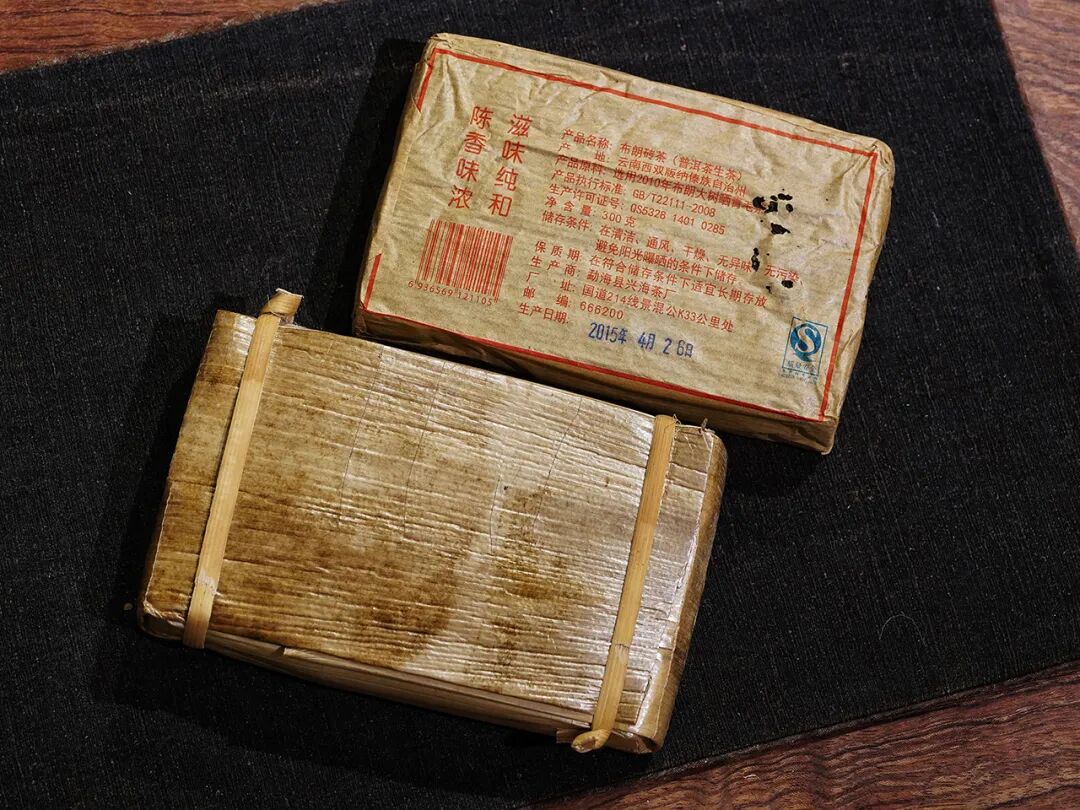 滋味纯和
陈香味浓
产品名称: 布朗砖茶（普洱茶生茶）
产 地: 云南西双版纳傣族自治州
产品原料: 选用2010年布朗大树晒青毛
产品执行标准: GB/T22111-2008
生产许可证号: QS5326 1401 0285
净 含 量: 300 克
储存条件: 在清洁、通风、干燥、无异味、无污染
避免阳光曝晒的条件下储存
保 质 期: 在符合储存条件下适宜长期存放
生 产 商: 勐海县兴海茶厂
厂 址: 国道214线景混公K33公里处
邮 编: 666200
生产日期: 2015年 4月 26日
6936569121105